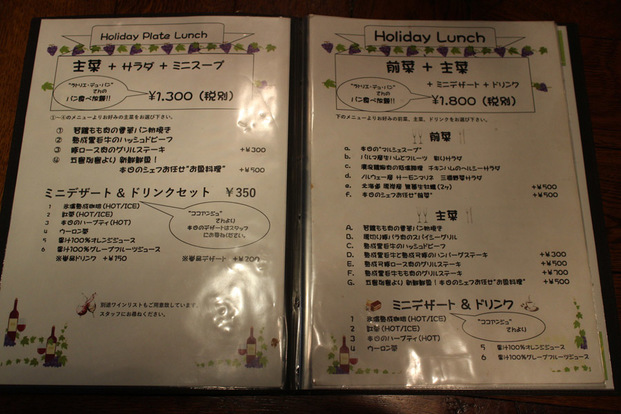 Holiday Plate Lunch
主菜 + サラダ + ミニスープ
"ラトリエ・デュ・パン"
さんの
パン食べ放題!!
¥1,300 (税別)
①~④のメニューよりお好みの主菜をお選び下さい。
① 若鶏もも肉の香草パン粉焼き
② 熟成黒若牛のハッシュドビーフ
③ 豚ロース肉のグリルステーキ +¥300
④ 五島列島より 新鮮鮮魚!
本日のシェフお任せ"お魚料理" +¥500
ミニデザート & ドリンクセット ¥350
1 氷温熟成珈琲(HOT/ICE)
2 紅茶(HOT/ICE)
3 本日のハーブティ(HOT)
4 ウーロン茶
5 果汁100%オレンジジュース
6 果汁100%グレープフルーツジュース
"ココアンジュ"
さんより
本日のデザートはスタッフ
にお尋ねください。
※単品ドリンク +¥150
※単品デザート +¥200
別途ワインリストもご用意致しています。
スタッフにお尋ねください。
Holiday Lunch
前菜 + 主菜
+ ミニデザート + ドリンク
"ラトリエ・デュ・パン"
さんの
パン食べ放題!!
¥1,800 (税別)
下のメニューよりお好みの前菜、主菜、ドリンクをお選び下さい。
前菜
a. 本日の"フルシュスープ"
b. パルマ産生ハムとフルーツ 彩りサラダ
c. チキンハムのヘルシーサラダ
d. ノルウェー産 サーモンマリネ 三浦野菜サラダ
e. 北海道 厚岸産 蒸し生牡蠣(2ヶ) +¥500
f. 本日のシェフお任せ"前菜" +¥500
主菜
A. 若鶏もも肉の香草パン粉焼き
B. 厚切り豚バラ肉のスパイシーグリル
C. 熟成黒若牛のハッシュドビーフ
D. 熟成黒若牛と熟成豚のハンバーグステーキ +¥300
E. 熟成豚ロース肉のグリルステーキ +¥500
F. 熟成黒若牛もも肉のグリルステーキ +¥700
G. 五島列島より 新鮮鮮魚!本日のシェフお任せ"お魚料理" +¥500
ミニデザート & ドリンク
1 氷温熟成珈琲(HOT/ICE)
2 紅茶(HOT/ICE)
3 本日のハーブティ(HOT)
4 ウーロン茶
"ココアンジュ"
さんより
5 果汁100%オレンジジュース
6 果汁100%グレープフルーツジュース